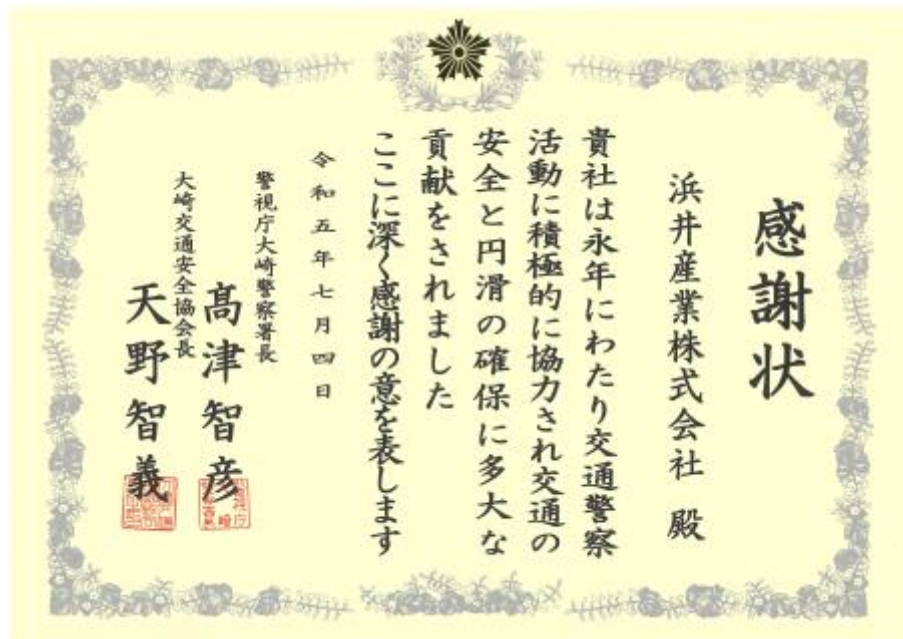 感謝状
浜井産業株式会社 殿
貴社は永年にわたり交通警察
活動に積極的に協力され交通の
安全と円滑の確保に多大な
貢献をされました
ここに深く感謝の意を表します
令和五年七月四日
警視庁大崎警察署長
髙津智彦
大崎交通安全協会長
天野智義